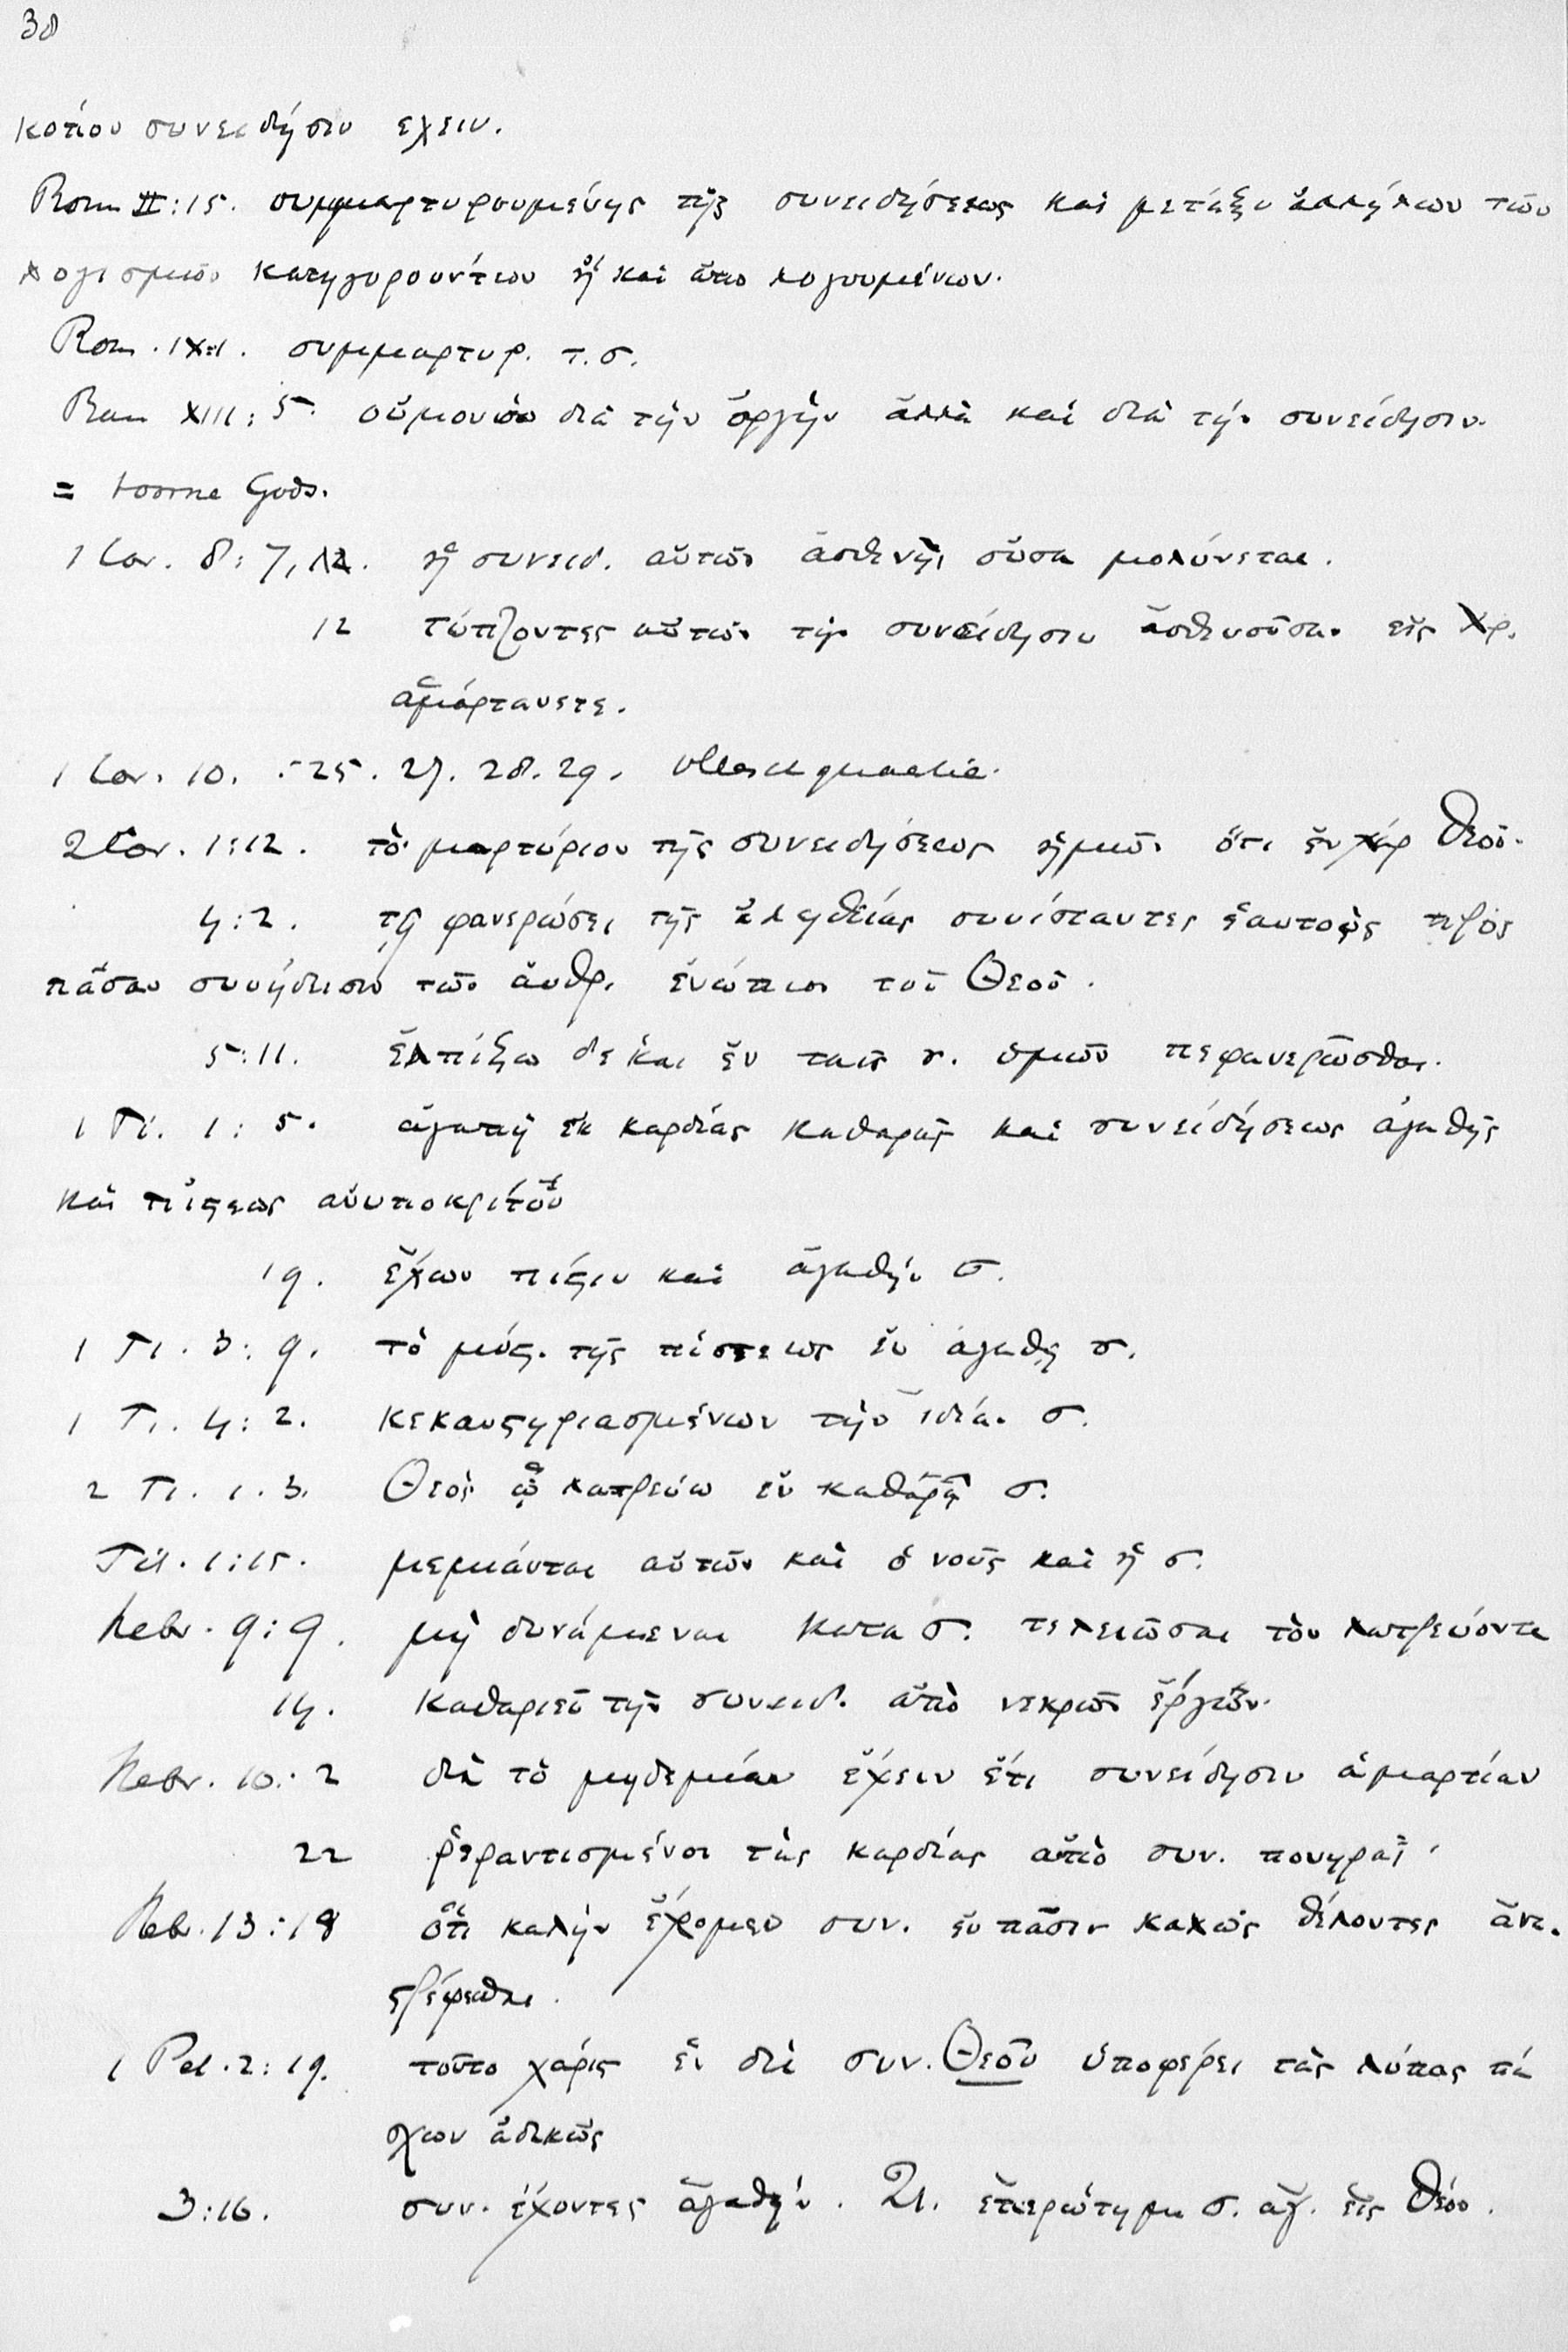 38
κοπον συνειδησιν εχειν.
Rom II:15. συμμαρτυρουμένης τῆς συνειδήσεως καὶ μετάξυ ἀλλήλων τῶν
λογισμῶν κατηγορούντων ἢ καὶ ἀπολογουμένων.
Rom. IX:1. συμμαρτυρ. τ. σ.
Rom XIII:5. οὐ μονον διὰ τὴν ὀργὴν ἀλλὰ καὶ διὰ τὴν συνείδησιν.
= toorne Gods.
1 Cor. 8:7, 12. ἡ συνειδ. αὐτῶν ἀσθενὴς οὖσα μολύνεται.
12 τύπτοντες αὐτῶν τὴν συνείδησιν ἀσθενοῦσαν εἰς Χρ.
ἁμάρτανετε.
1 Cor. 10. :25. 27. 28. 29. vleesch quaestie.
2 Cor. 1:12. τὸ μαρτύριον τῆς συνειδήσεως ἡμῶν ὅτι ἐν χάρ Θεοῦ.
4:2. τῇ φανερώσει τῆς ἀληθείας συνίσταντες ἑαυτοὺς πρὸς
πᾶσαν συνήδεισιν τῶν ἀνθρ. ἐνώπιον τοῦ Θεοῦ.
5:11. ἐλπίζω δε και ἐν ταις σ. ὑμῶν πεφανερῶσθαι.
1 Ti. 1:5. ἀγαπη ἐκ καρδίας καθαρᾶς καὶ συνείδήσεως ἀγαθῆς
καὶ πίϛεως ἀνυποκρίτου
19. ἔχων πίϛιν καὶ ἀγαθὴν σ.
1 Ti. 3:9. τὸ μύϛ. τῆς πίστεως ἐν ἀγαθῇ σ.
1 Ti. 4:2. κεκαυϛηριασμένων τὴν ἰδίαν σ.
2 Ti. 1.3. Θεὸς ᾧ λατρεύω ἐν καθαρᾷ σ.
Tit. 1:15. μεμιάνται αὐτῶν καὶ ὁ νοῦς καὶ ἡ σ.
Hebr. 9:9. μὴ δυνάμεναι κατα σ. τελειῶσαι τὸν λατρεύοντα
14. καθαριεῖ τὴν συνειδ. ἀπὸ νεκρῶν ἔργων.
Hebr. 10:2 διὰ τὸ μηδεμίαν ἔχειν ἔτι συνείδησιν ἁμαρτίαν
22 ῥεραντισμένοι τὰς καρδίας ἀπὸ συν. πονηρᾶς.
Hebr. 13:18 ὅτι καλὴν ἔχομεν συν. ἐν πᾶσιν καλῶς θέλοντες ἀνα.
ϛρέφεσθαι.
1 Pet. 2:19. τοῦτο χάρις εἰ διὰ συν. Θεοῦ ὑποφέρει τὰς λύπας πά
σχων ἀδικῶς
3:16. συν. ἔχοντες ἀγαθήν. 21. ἐπερώτημα σ. ἀγ. εἰς Θεόν.